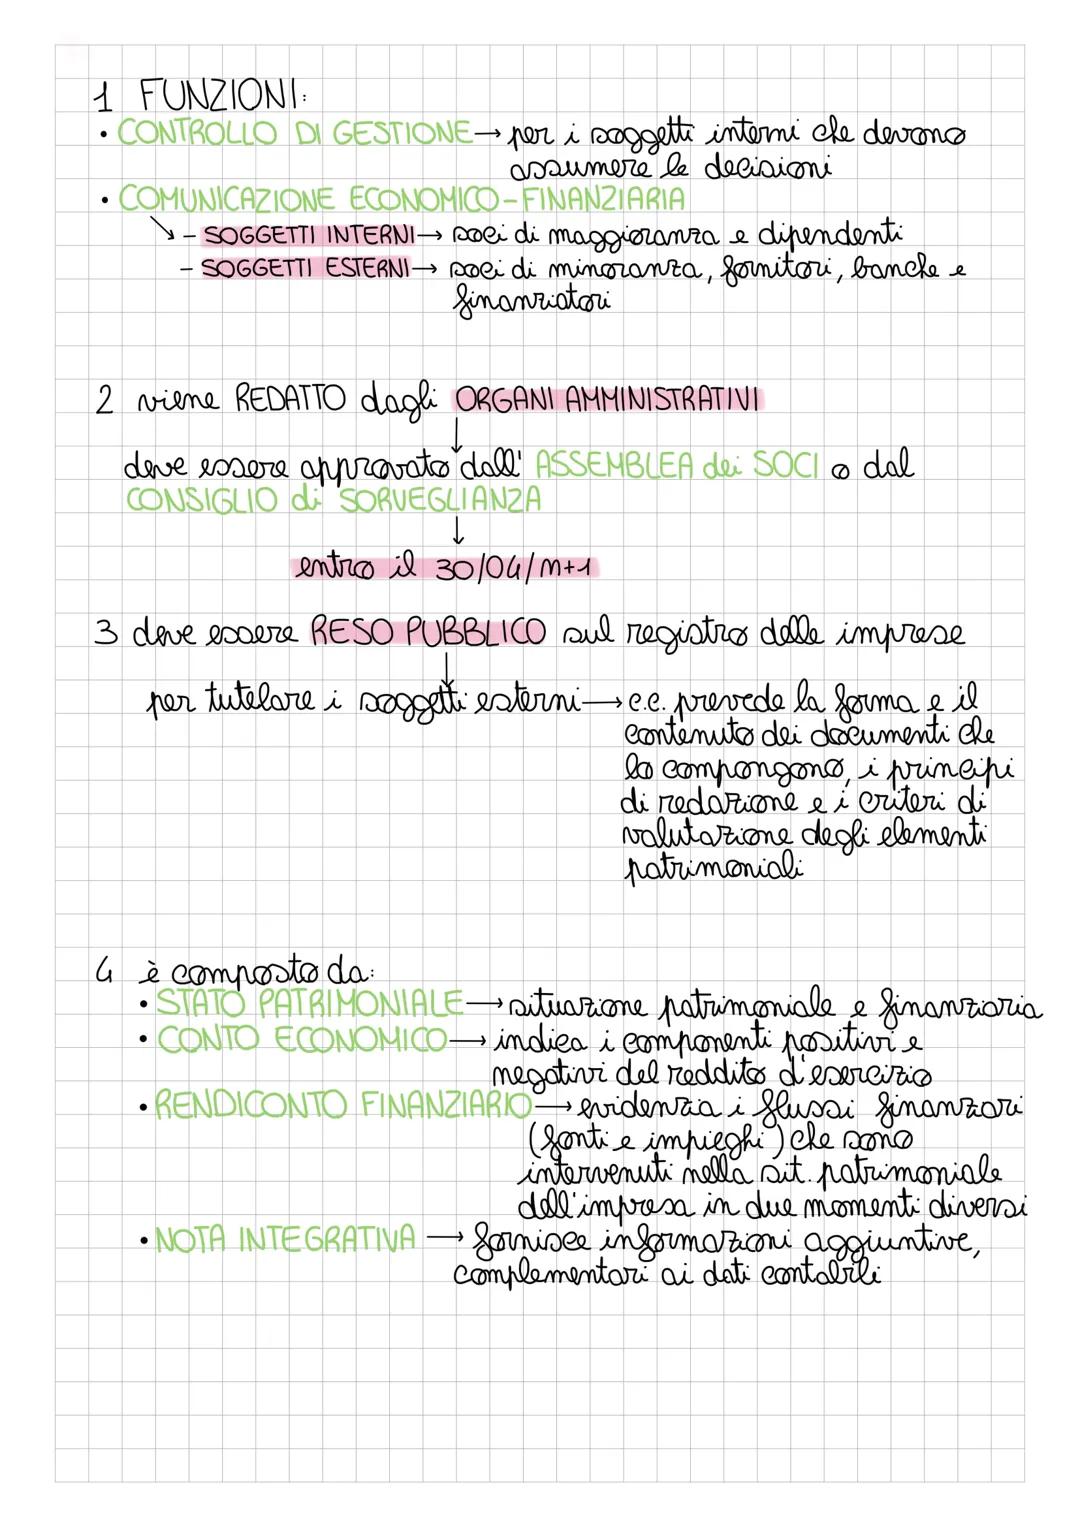 1 FUNZIONI:
• CONTROLLO DI GESTIONE → per i soggetti interni che devono
assumere le decisioni
• COMUNICAZIONE ECONOMICO-FINANZIARIA
↘ - SOGGETTI INTERNI → soci di maggioranza e dipendenti
- SOGGETTI ESTERNI → soci di minoranza, fornitori, banche e
finanziatori
2 viene REDATTO dagli ORGANI AMMINISTRATIVI
↓
deve essere approvato dall' ASSEMBLEA dei SOCI o dal
CONSIGLIO di SORVEGLIANZA
↓
entro il 30/04/n+1
3 deve essere RESO PUBBLICO sul registro delle imprese
↓
per tutelare i soggetti esterni → c.c. prevede la forma e il
contenuto dei documenti che
lo compongono, i principi
di redazione e i criteri di
valutazione degli elementi
patrimoniali
4 è composto da:
• STATO PATRIMONIALE → situazione patrimoniale e finanziaria
• CONTO ECONOMICO → indica i componenti positivi e
negativi del reddito d'esercizio
• RENDICONTO FINANZIARIO → evidenzia i flussi finanziari
(fonti e impieghi) che sono
intervenuti nella sit. patrimoniale
dell'impresa in due momenti diversi
• NOTA INTEGRATIVA → fornisce informazioni aggiuntive,
complementari ai dati contabili